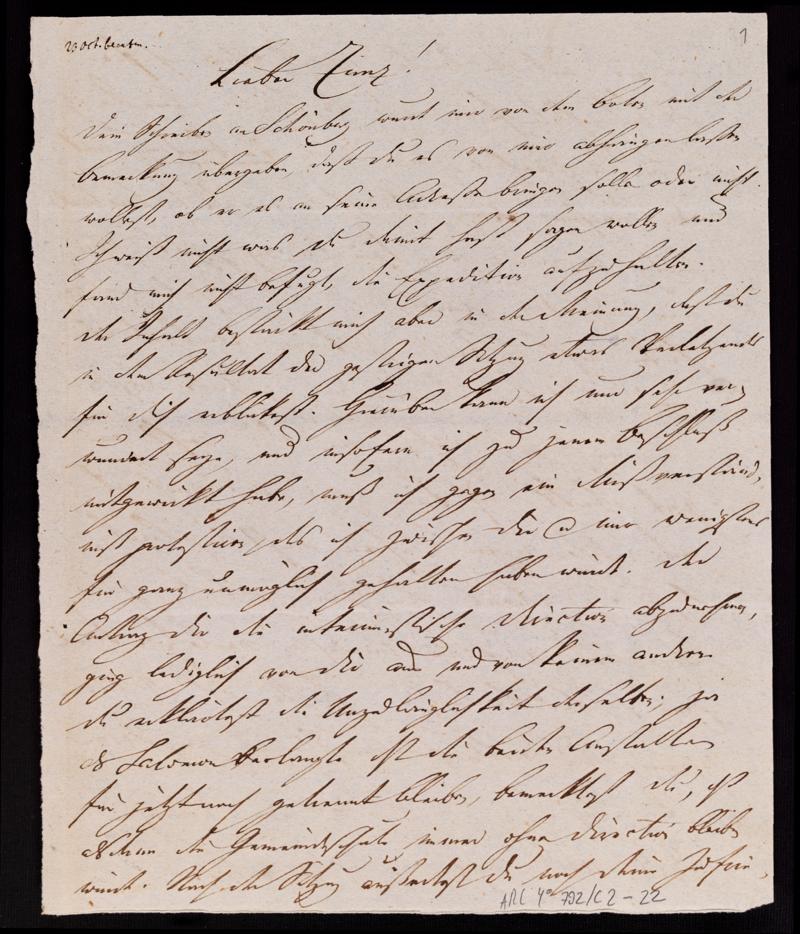 1
Lieber Zunz!
Dein Schreiben an Schönberg wurde mir von dem Boten mit der
Bemerkung übergeben, daß du es von mir abhängen lassen
wollest, ob er es an seine Adresse bringen solle oder nicht.
Ich weiß nicht was du damit hast sagen wollen und
fand mich nicht befugt, die Expedition aufzuhalten.
Der Inhalt bestärkt mich aber in der Meinung, daß du
in dem Resultat der gestrigen Sitzung etwas Verletzendes
für dich erblickest. Hierüber kann ich nur sehr ver-
wundert seyn, und insofern ich zu jenem Beschluß
mitgewirkt habe, muß ich gegen ein Mißverständ-
niß protestiren, das ich zwischen dir u mir wenigstens
für ganz unmöglich gehalten haben würde. Der
Antrag dir die interimistische Direction abzunehmen,
ging lediglich von dir aus und von keinem andern
du erklärtest die Unzulänglichkeit derselben; ja
als Salomon verlangte daß die beiden Anstalten
für jetzt noch getrennt bleiben, bemerktest du, daß
alsdann die Gemeindeschule immer ohne Direction bleiben
würde. Nach der Sitzung äußertest du noch deine
ARC 4° 792/C2-22